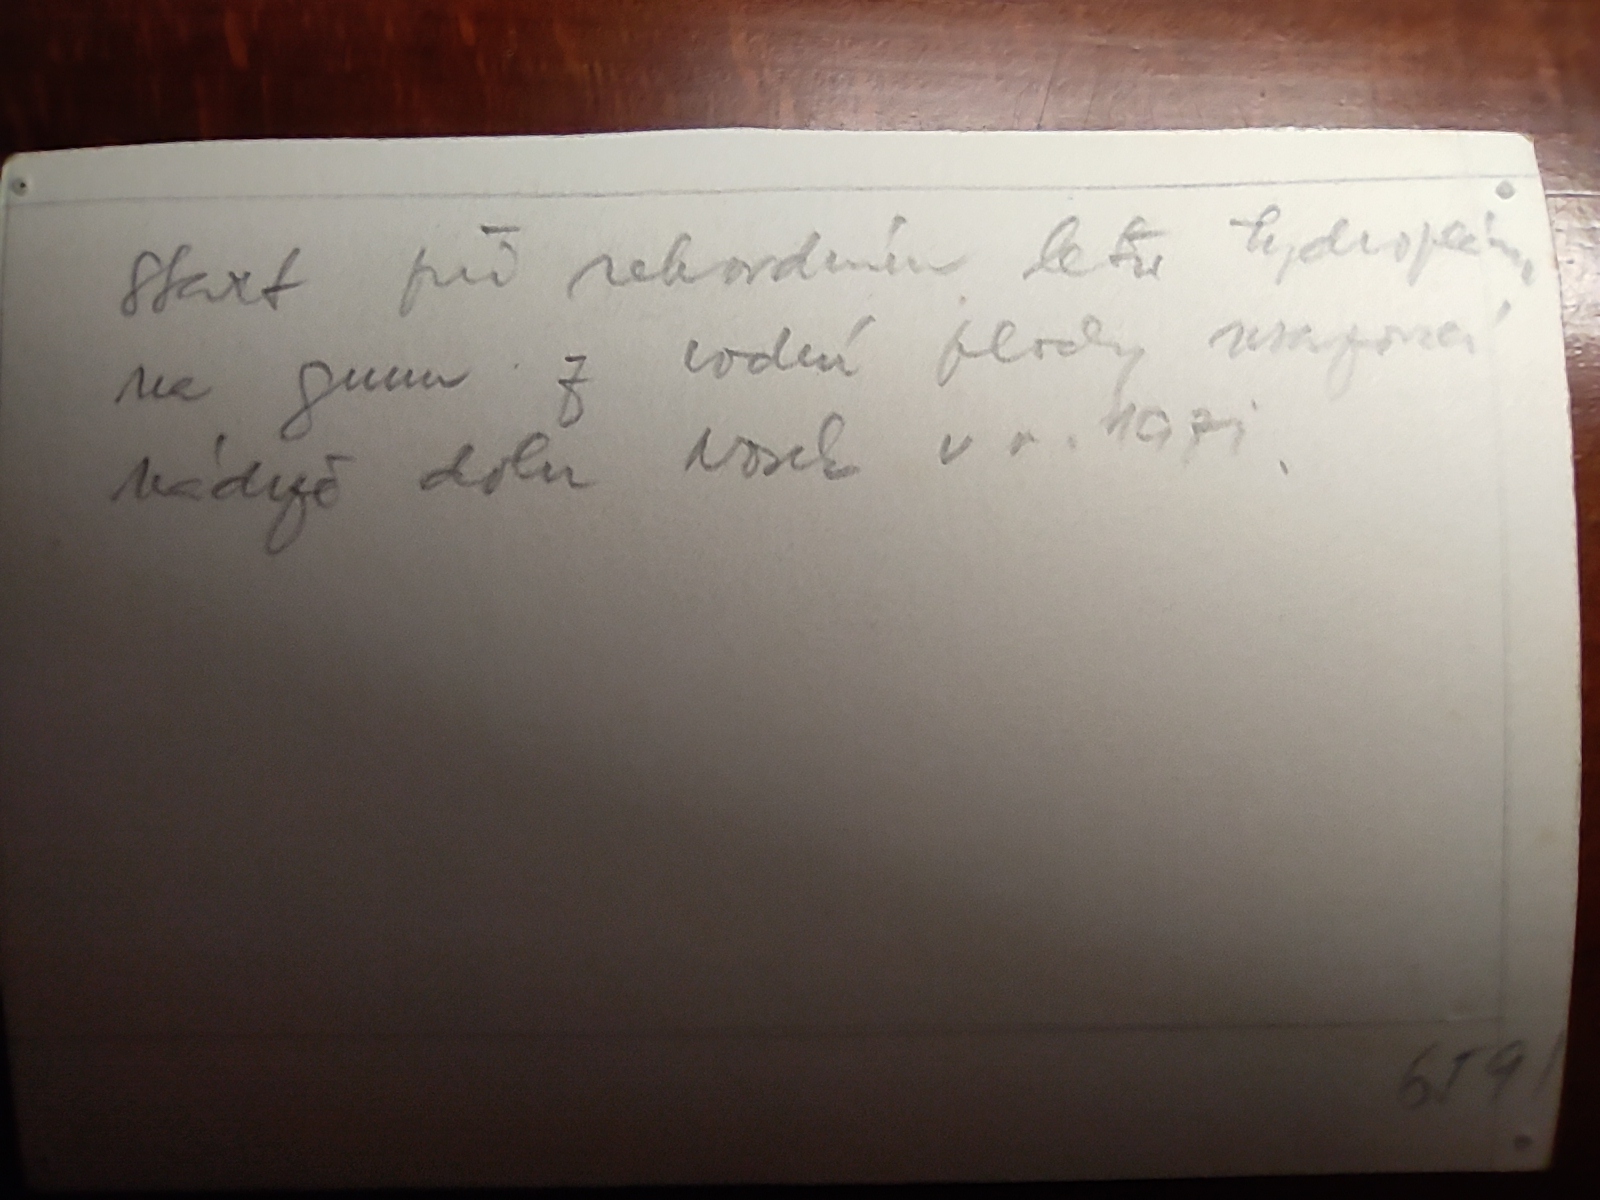 Start při rekordním letu hydroplánu
na gumu z vodní plochy usazovací
nádrže dolu Nosek v r.
659